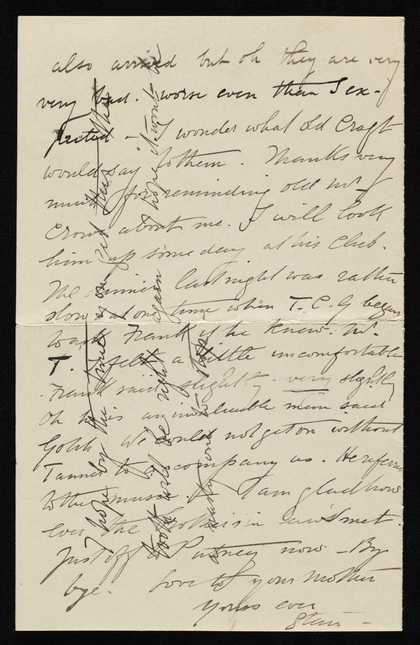 also arrived but oh they are very
very bad. worse even than I ex-
pected - I wonder what old Craft
would say to them. Thanks very
much for reminding old Mr
Crowe about me. I will look
him up some day at his Club.
The dinner last night was rather
slow at one time when T. C. G began
to ask Frank if he knew Mr.
T. felt a little uncomfortable
Frank said slightly - very slightly
Oh he is an invaluable man said
Gotch. We could not get on without
Tanner to accompany us. He referred
to the music. I am glad how
ever the Corliss is
Just off to Putney now - By
bye. Love to your Mother
Yours ever
I hope by this time you
will be right again I hope it wont be